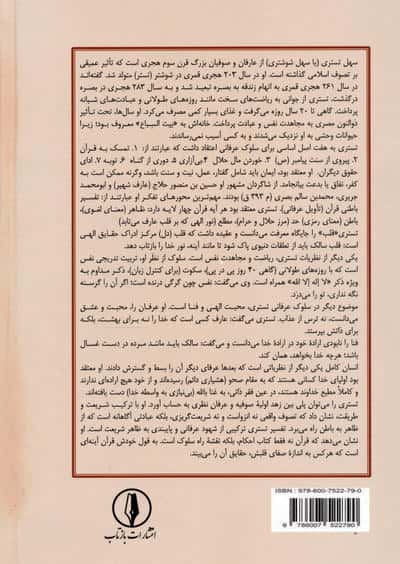 سهل تستری (یا سهل شوشتری) از عارفان و صوفیان بزرگ قرن سوم هجری است که تأثیر عمیقی
بر تصوف اسلامی گذاشته است. او در سال ۲۰۳ هجری قمری در شوشتر (تستر) متولد شد. گفته‌اند
در سال ۲۶۱ هجری قمری به اتهام زندقه به بصره تبعید شد و به سال ۲۸۳ هجری در بصره
درگذشت. تستری از جوانی به ریاضت‌های سخت مانند روزه‌های طولانی و عبادت‌های شبانه
پرداخت. گاهی تا ۲۰ سال روزه می‌گرفت و غذای بسیار کمی مصرف می‌کرد. او سال‌ها، تحت تأثیر
ذوالنون مصری به مجاهدت نفس و عبادت پرداخت. خانه‌اش به «بیت السباع» معروف بود؛ زیرا
حیوانات وحشی به او نزدیک می‌شدند و به کسی آسیب نمی‌رساندند.
تستری به هفت اصل اساسی برای سلوک عرفانی اعتقاد داشت که عبارتند از: ۱. تمسک به قرآن
۲. پیروی از سنت پیامبر (ص) ۳. خوردن مال حلال ۴. بی‌آزاری ۵. دوری از گناه ۶. توبه ۷. ادای
حقوق دیگران. او معتقد بود، ایمان باید شامل گفتار، عمل، نیت و سنت باشد، وگرنه ممکن است به
کفر، نفاق یا بدعت بیانجامد. از شاگردان مشهور او حسین بن منصور حلاج (عارف شهیر) و ابومحمد
جریری، محمدبن سالم بصری (۳۹۳ ق) بودند. مهم‌ترین محورهای تفکر او عبارتند از: تفسیر
باطنی قرآن (تأویل عرفانی). تستری معتقد بود هر آیه قرآن چهار لایه دارد: ظاهر (معنای لغوی)،
باطن (معنای رمزی)، حد (مرز حلال و حرام)، مطلع (نور الهی که بر قلب عارف می‌تابد)
تستری «قلب» را جایگاه معرفت می‌دانست و عقیده داشت که قلب (دل) مرکز ادراک حقایق الهی
است؛ قلب سالک باید از تعلقات دنیوی پاک شود تا مانند آینه، نور خدا را بازتاب دهد.
یکی دیگر از نظریات تستری، ریاضت و مجاهدت نفس است. از منظر او، تربیت تدریجی نفس
که با روزه‌های طولانی (گاهی ۴۰ روز پی در پی)، سکوت (برای کنترل زبان)، ذکر مداوم به
ویژه ذکر «لا إله إلا الله» همراه است. وی می‌گفت: نفس چون گرگی درنده است؛ اگر آن را گرسنه
نگه نداری، تو را می‌درد.
موضوع دیگر در سلوک عرفانی تستری، محبت الهی و فنا است. او عرفان را، محبت و عشق
می‌دانست، نه ترس از عذاب. تستری می‌گفت: عارف کسی است که خدا را نه برای بهشت، بلکه
برای ذاتش بپرستد.
فنا را نابودی ارادهٔ خود در ارادهٔ خدا می‌دانست و می‌گفت: سالک باید مانند مرده در دست غسال
باشد؛ هرچه خدا بخواهد، همان کند.
انسان کامل یکی دیگر از نظریاتی است که بعدها عرفای دیگر آن را بسط و گسترش دادند. او معتقد
بود اولیای خدا کسانی هستند که به مقام صحو (هشیاری دائم) رسیده‌اند و از خود هیچ اراده‌ای ندارند
و کاملاً مطیع خداوند هستند، در عین فقر ذاتی، به غنا بالله (بی‌نیازی به واسطه خدا) دست یافته‌اند.
تستری را می‌توان پلی بین زهد اولیهٔ صوفیه و عرفان نظری به حساب آورد. او با ترکیب شریعت و
طریقت، نشان داد که تصوف واقعی نه انزواست و نه شریعت‌گریزی، بلکه عبادتی آگاهانه است که از
ظاهر به باطن راه می‌برد. تفسیر تستری ترکیبی از شهود عرفانی و پایبندی به ظاهر شریعت است. او
نشان می‌دهد که قرآن نه فقط کتاب احکام، بلکه نقشهٔ راه سلوک است. به قول خودش قرآن آینه‌ای
است که هرکس به اندازهٔ صفای قلبش، حقایق آن را می‌بیند.
ISBN : 978-600-7522-79-0
9 786007 522790
انتشارات بازتاب